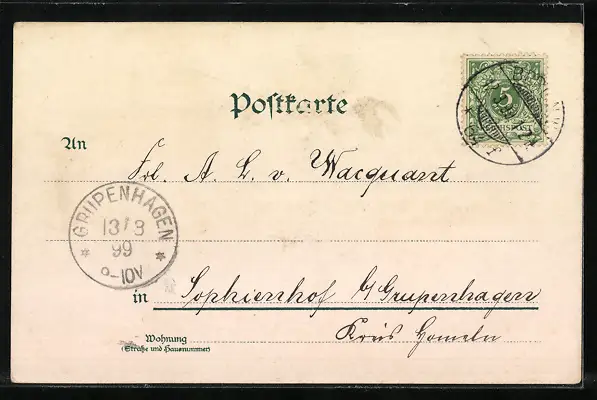 Postkarte
5
An
Frl. A. L. v. Wacquant
GRUPENHAGEN
13/3
99
9-10V
in Sophienhof b/ Grupenhagen
Wohnung
(Straße und Hausnummer)
Kreis Hameln